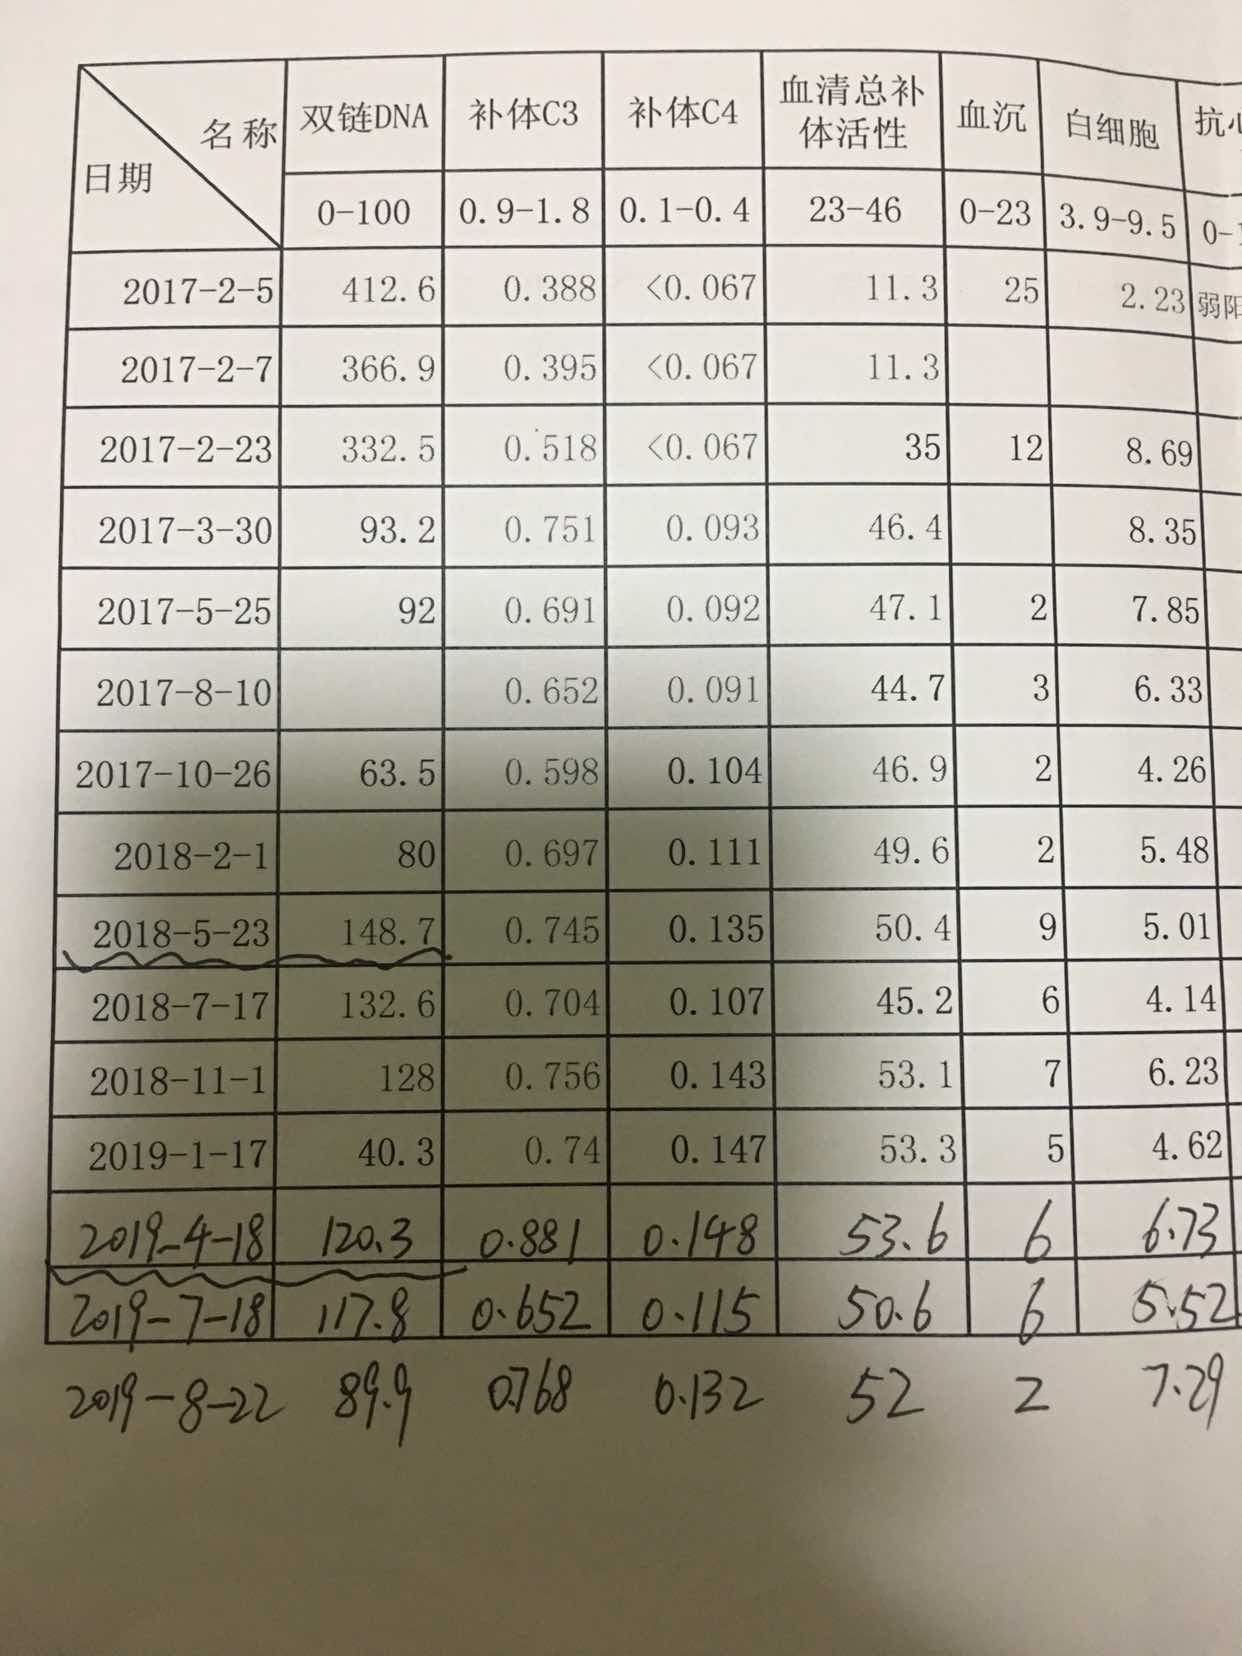 名称 双链DNA 补体C3 补体C4 血清总补体活性 血沉 白细胞 抗心
日期 0-100 0.9-1.8 0.1-0.4 23-46 0-23 3.9-9.5 0-1
2017-2-5 412.6 0.388 <0.067 11.3 25 2.23 弱阳
2017-2-7 366.9 0.395 <0.067 11.3
2017-2-23 332.5 0.518 <0.067 35 12 8.69
2017-3-30 93.2 0.751 0.093 46.4 8.35
2017-5-25 92 0.691 0.092 47.1 2 7.85
2017-8-10 0.652 0.091 44.7 3 6.33
2017-10-26 63.5 0.598 0.104 46.9 2 4.26
2018-2-1 80 0.697 0.111 49.6 2 5.48
2018-5-23 148.7 0.745 0.135 50.4 9 5.01
2018-7-17 132.6 0.704 0.107 45.2 6 4.14
2018-11-1 128 0.756 0.143 53.1 7 6.23
2019-1-17 40.3 0.74 0.147 53.3 5 4.62
2019-4-18 120.3 0.881 0.148 53.6 6 6.73
2019-7-18 117.8 0.652 0.115 50.6 6 5.52
2019-8-22 89.9 0.768 0.132 52 2 7.29